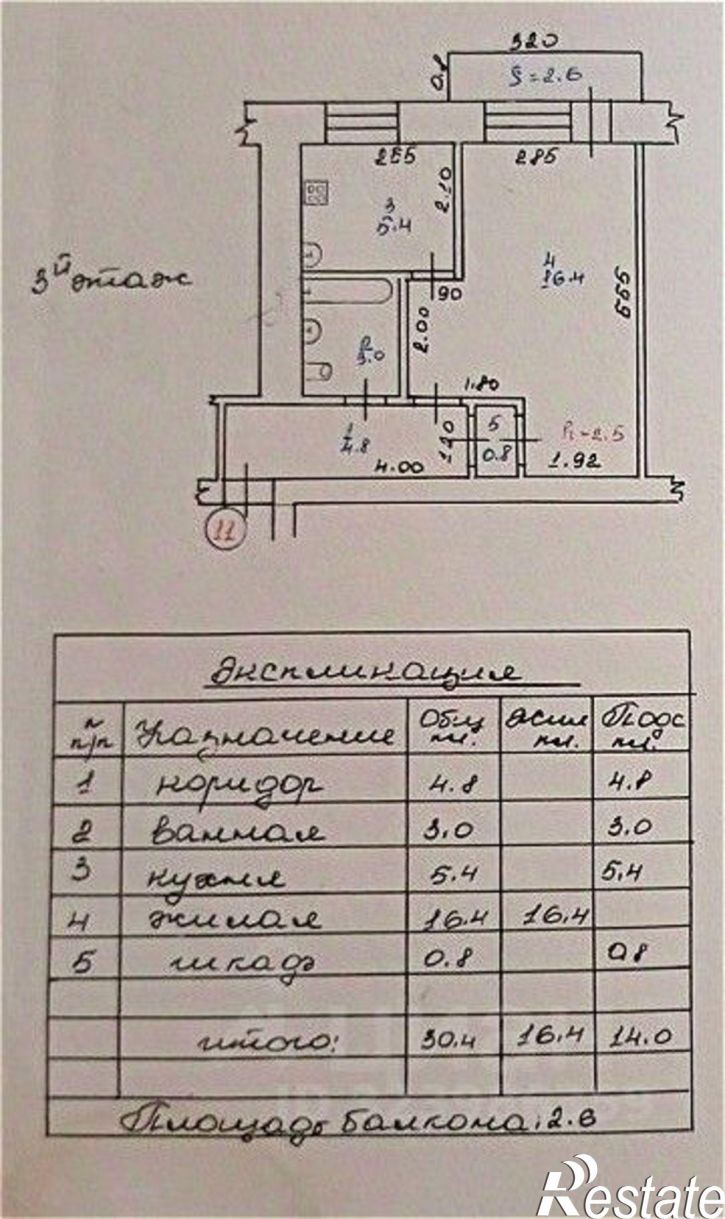 320
0.8
S=2.6
255
285
2.10
3
5.4
4
16.4
555
3й этаж
90
2.00
2
3.0
1.80
1
4.8
1.20
5
0.8
h-2.5
4.00
1.92
11
Экспликация
№ п/п Назначение Общ пл. Жил пл. Подс пл.
1 коридор 4.8 4.8
2 ванная 3.0 3.0
3 кухня 5.4 5.4
4 жилая 16.4 16.4
5 шкаф 0.8 0.8
итого: 30.4 16.4 14.0
Площадь балкона: 2.6
Restate